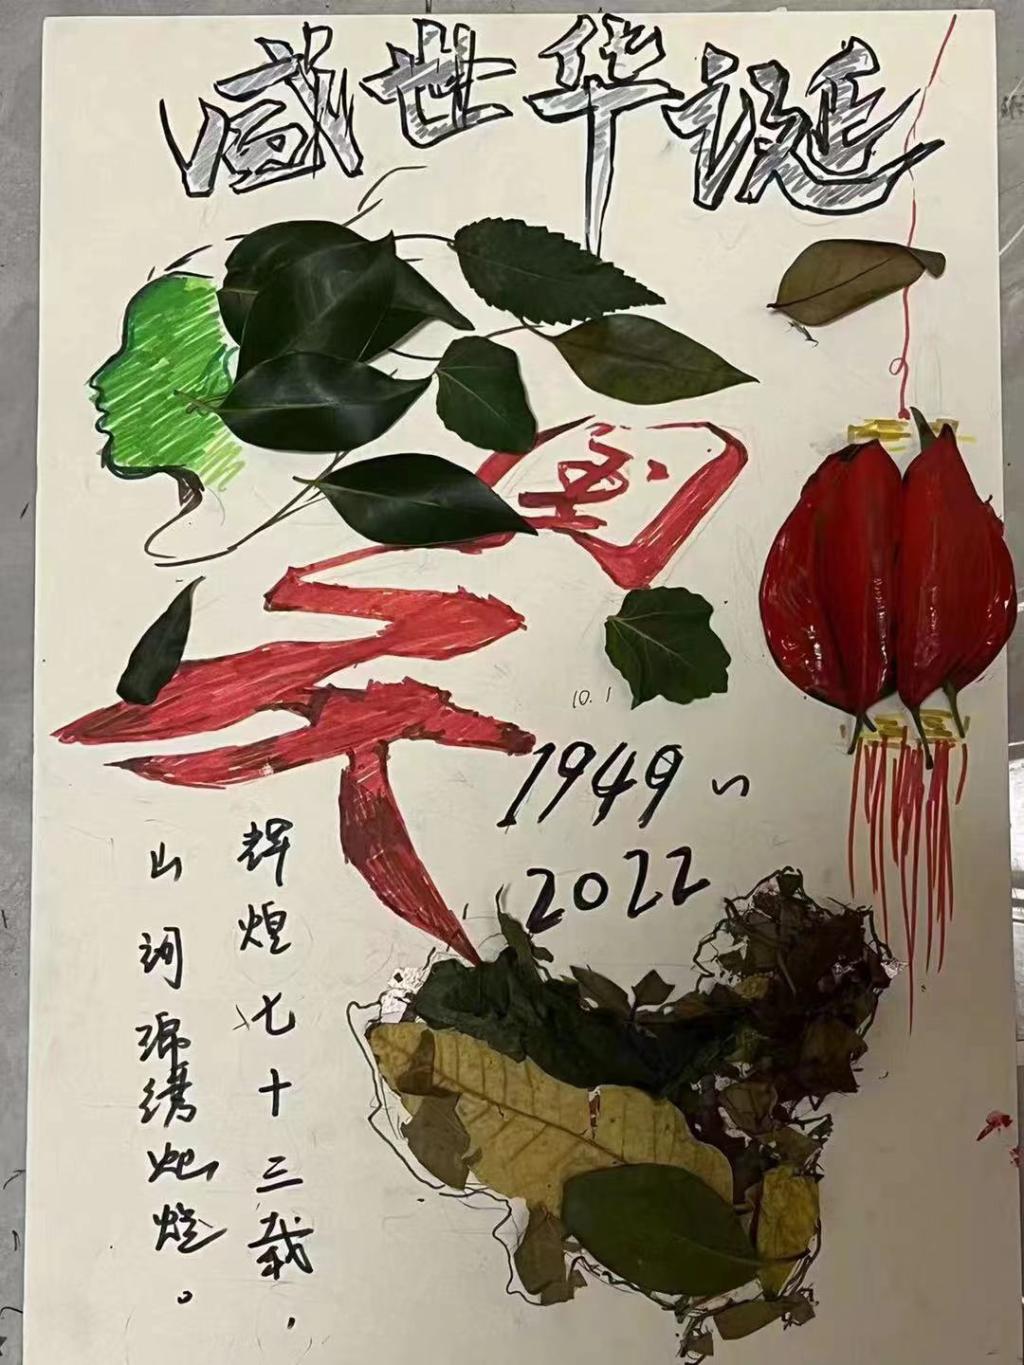 盛世华诞
国
10.1
1949~
2022
辉煌七十三载，
山河锦绣灿烂。